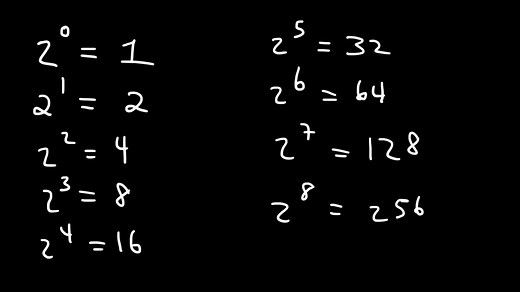 2⁰ = 1
2¹ = 2
2² = 4
2³ = 8
2⁴ = 16
2⁵ = 32
2⁶ = 64
2⁷ = 128
2⁸ = 256